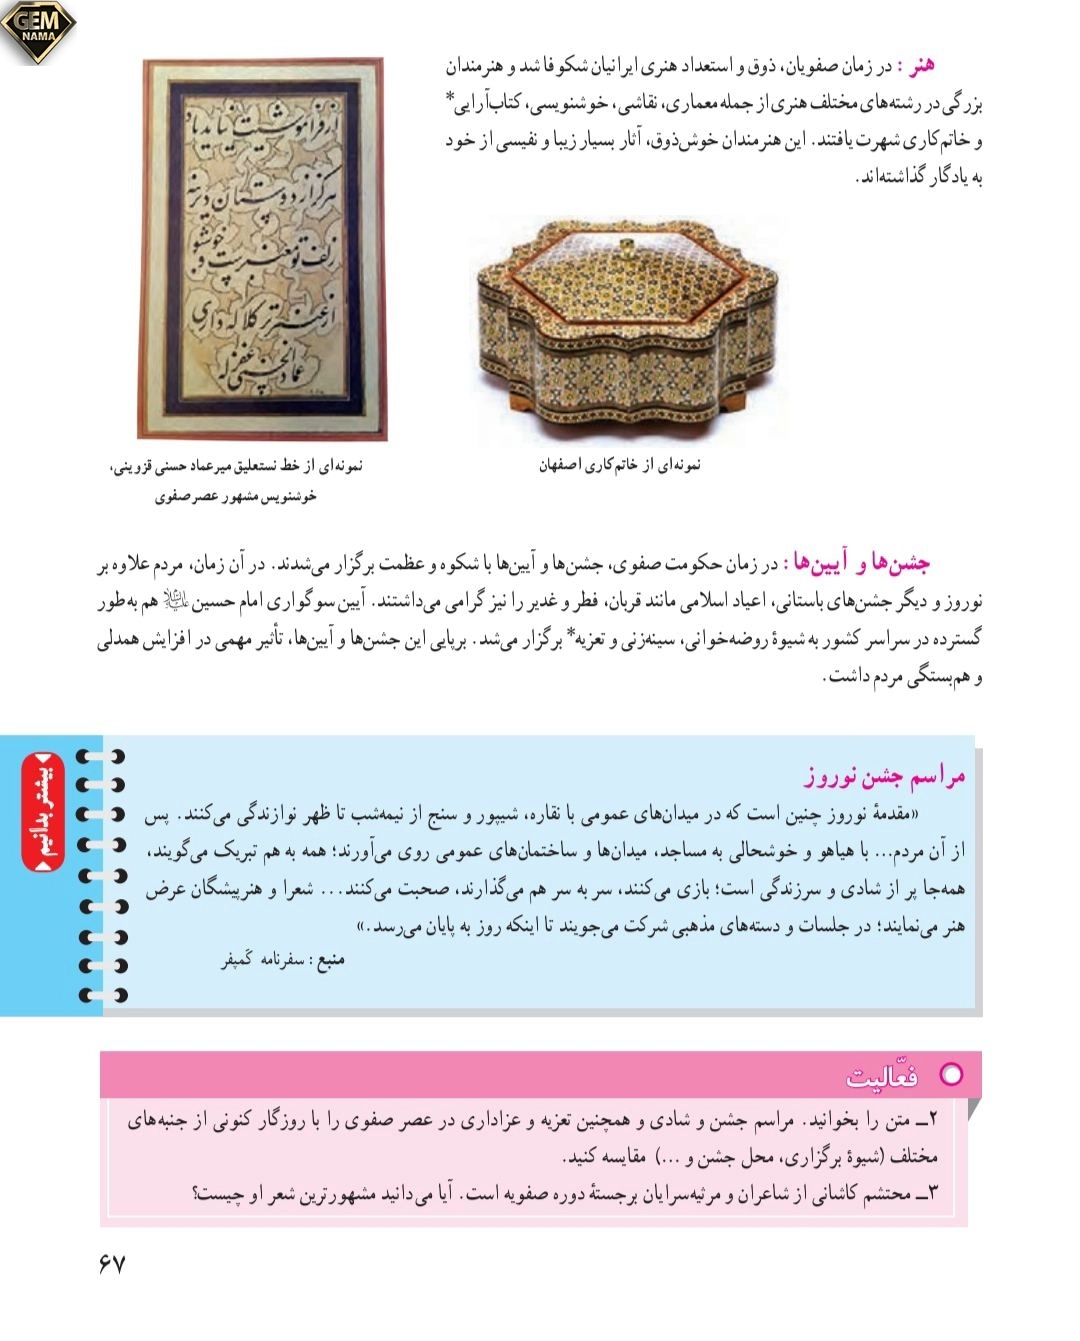 GEM
NAMA
هنر : در زمان صفویان، ذوق و استعداد هنری ایرانیان شکوفا شد و هنرمندان
بزرگی در رشته‌های مختلف هنری از جمله معماری، نقاشی، خوشنویسی، کتاب‌آرایی*
و خاتم‌کاری شهرت یافتند. این هنرمندان خوش‌ذوق، آثار بسیار زیبا و نفیسی از خود
به یادگار گذاشته‌اند.
نمونه‌ای از خاتم‌کاری اصفهان
نمونه‌ای از خط نستعلیق میرعماد حسنی قزوینی،
خوشنویس مشهور عصر صفوی
جشن‌ها و آیین‌ها : در زمان حکومت صفوی، جشن‌ها و آیین‌ها با شکوه و عظمت برگزار می‌شدند. در آن زمان، مردم علاوه بر
نوروز و دیگر جشن‌های باستانی، اعیاد اسلامی مانند قربان، فطر و غدیر را نیز گرامی می‌داشتند. آیین سوگواری امام حسین علیه‌السلام هم به‌طور
گسترده در سراسر کشور به شیوهٔ روضه‌خوانی، سینه‌زنی و تعزیه* برگزار می‌شد. برپایی این جشن‌ها و آیین‌ها، تأثیر مهمی در افزایش همدلی
و هم‌بستگی مردم داشت.
بیشتر بدانیم
مراسم جشن نوروز
«مقدمهٔ نوروز چنین است که در میدان‌های عمومی با نقاره، شیپور و سنج از نیمه‌شب تا ظهر نوازندگی می‌کنند. پس
از آن مردم... با هیاهو و خوشحالی به مساجد، میدان‌ها و ساختمان‌های عمومی روی می‌آورند؛ همه به هم تبریک می‌گویند،
همه‌جا پر از شادی و سرزندگی است؛ بازی می‌کنند، سر به سر هم می‌گذارند، صحبت می‌کنند... شعرا و هنرپیشگان عرض
هنر می‌نمایند؛ در جلسات و دسته‌های مذهبی شرکت می‌جویند تا اینکه روز به پایان می‌رسد.»
منبع : سفرنامه کَمپفر
فعّالیت
۲ـ متن را بخوانید. مراسم جشن و شادی و همچنین تعزیه و عزاداری در عصر صفوی را با روزگار کنونی از جنبه‌های
مختلف (شیوهٔ برگزاری، محل جشن و ...) مقایسه کنید.
۳ـ محتشم کاشانی از شاعران و مرثیه‌سرایان برجستهٔ دوره صفویه است. آیا می‌دانید مشهورترین شعر او چیست؟
۶۷